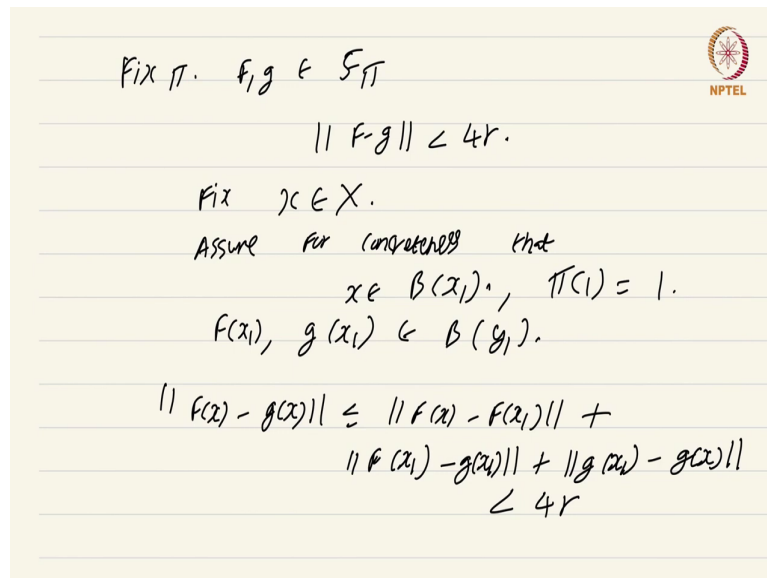 Fix π. F, g ∈ 𝓕π
NPTEL
|| F-g || < 4r.
Fix x ∈ X.
Assume for concreteness that
x ∈ B(x₁)., π(1) = 1.
F(x₁), g(x₁) ∈ B(y₁).
|| F(x) - g(x) || ≤ || F(x) - F(x₁) || +
|| F(x₁) - g(x₁) || + || g(x₁) - g(x) ||
< 4r